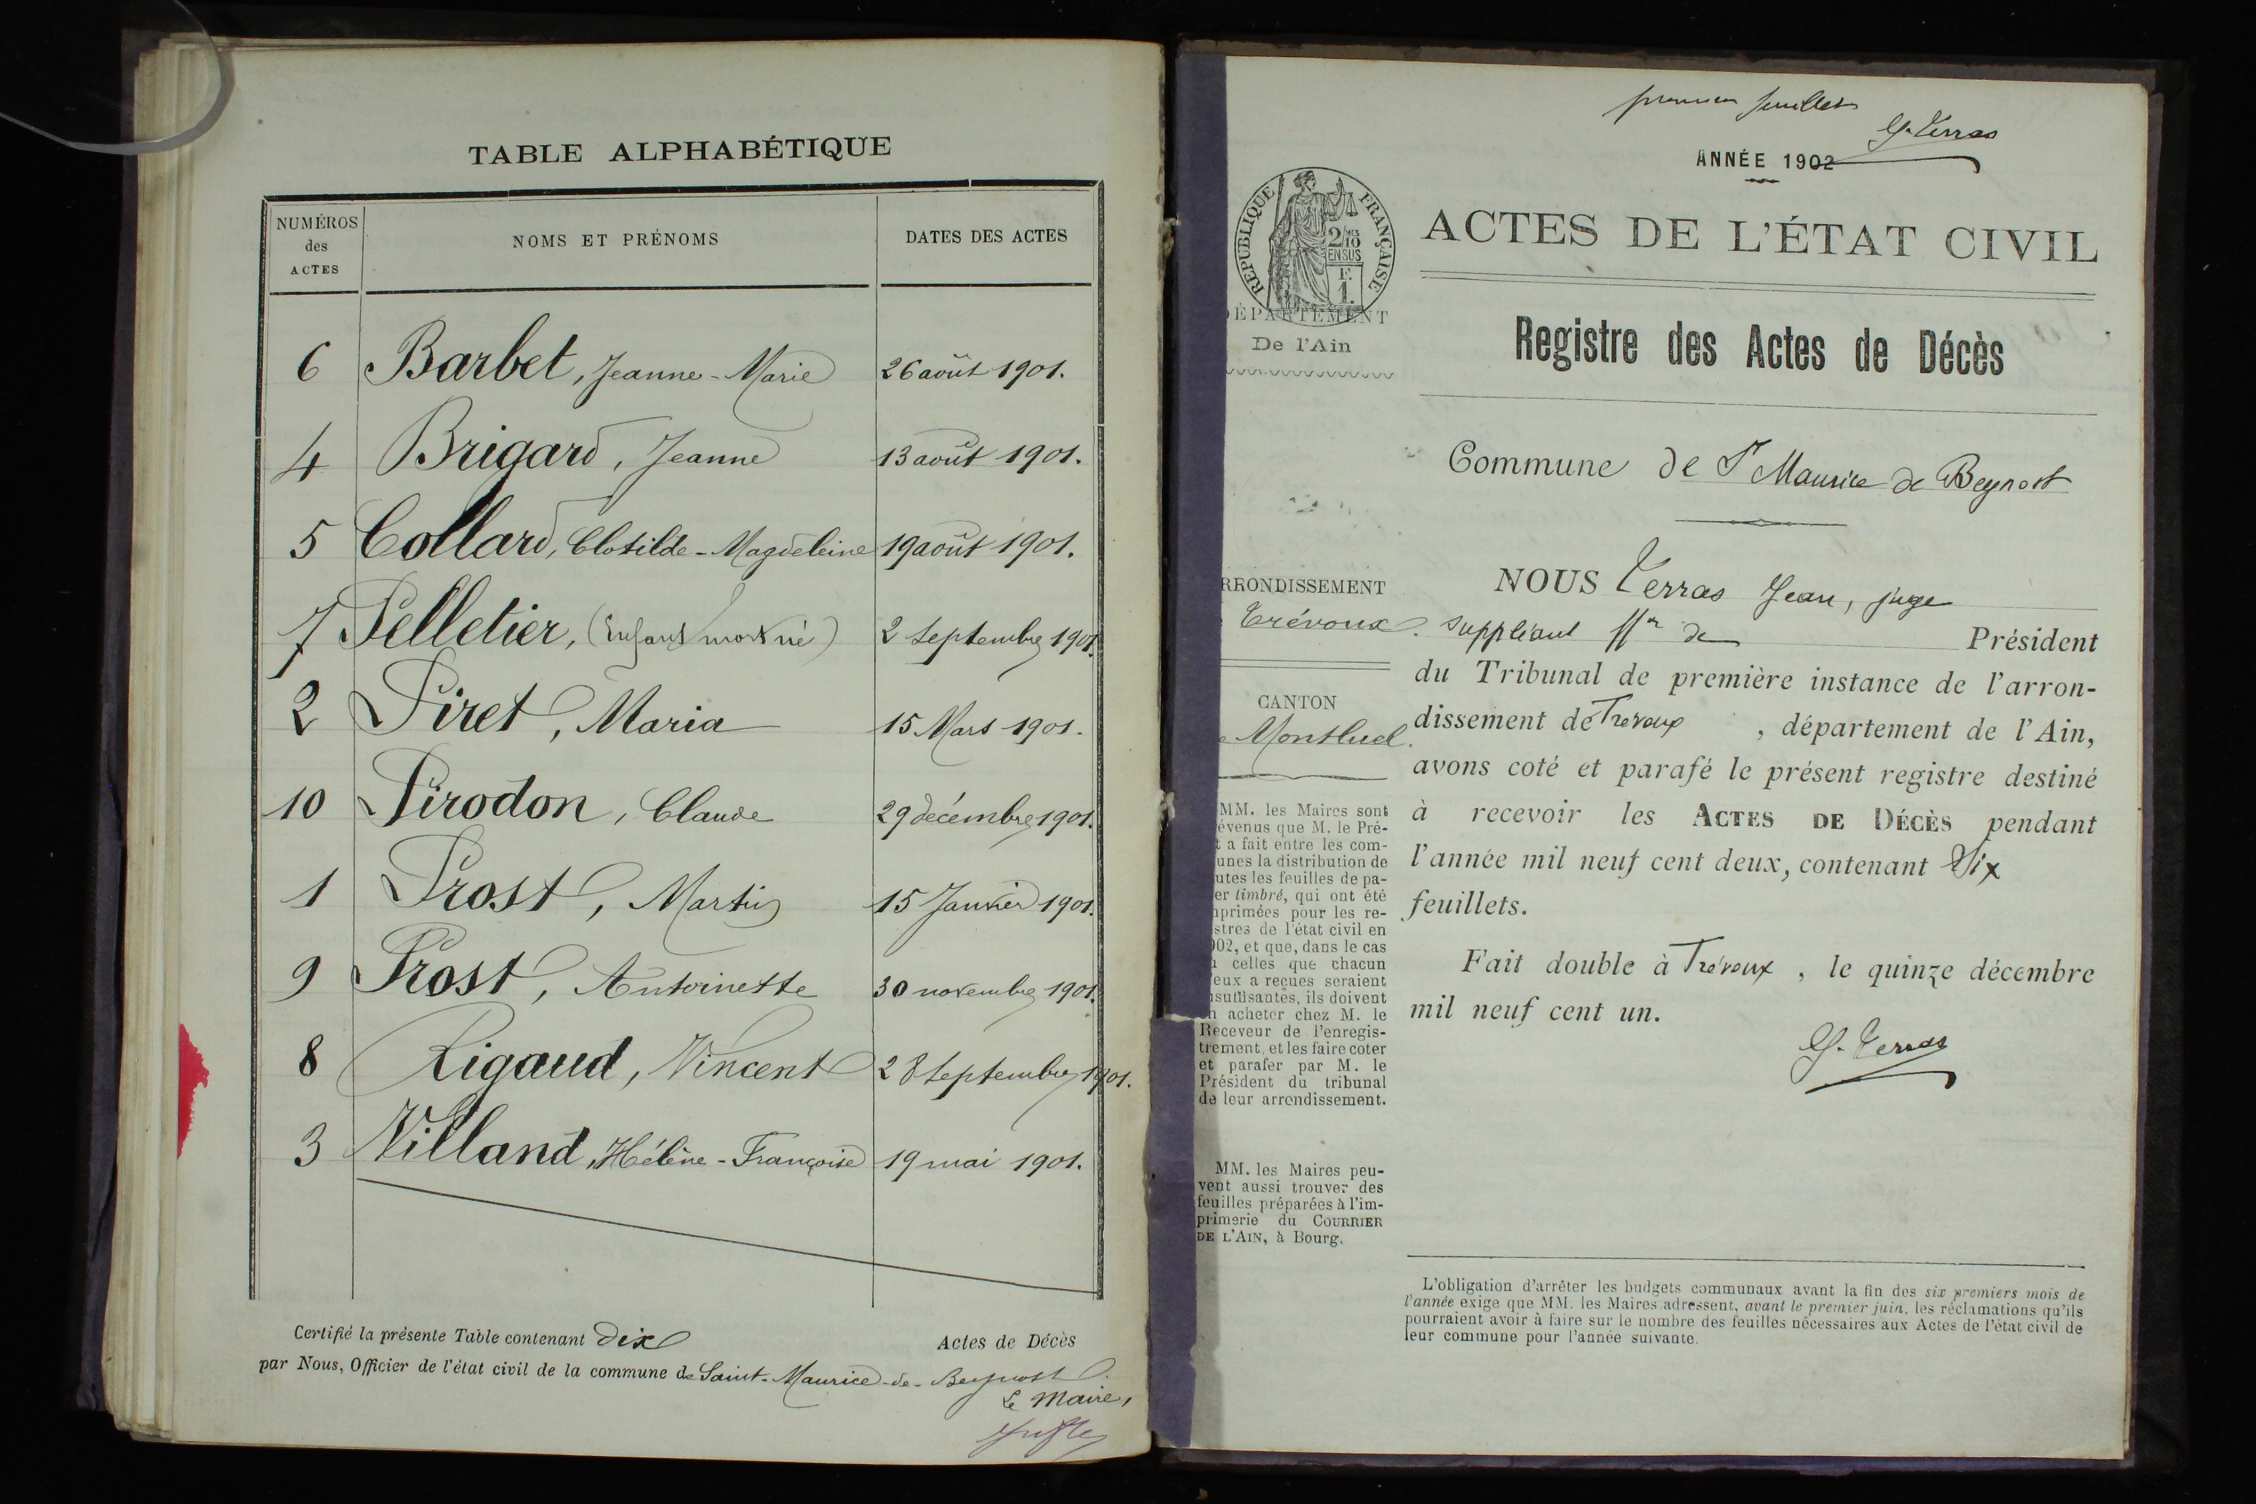 TABLE ALPHABÉTIQUE
NUMÉROS des ACTES
NOMS ET PRÉNOMS
DATES DES ACTES
6 Barbet, Jeanne-Marie 26 août 1901.
4 Brigard, Jeanne 13 août 1901.
5 Collard, Clotilde-Magdeleine 19 août 1901.
7 Pelletier, (Enfant mort né) 2 septembre 1901.
2 Piret, Maria 15 Mars 1901.
10 Pirodon, Claude 29 décembre 1901.
1 Prost, Martin 15 Janvier 1901.
9 Prost, Antoinette 30 novembre 1901.
8 Rigaud, Vincent 28 septembre 1901.
3 Villand, Hélène-Françoise 19 mai 1901.
Certifié la présente Table contenant dix Actes de Décès
par Nous, Officier de l'état civil de la commune de Saint-Maurice-de-Beynost.
Le Maire,
premier feuillet
J. Terras
ANNÉE 1902
RÉPUBLIQUE FRANÇAISE
2/10
EN SUS
F.
1.
ACTES DE L'ÉTAT CIVIL
DÉPARTEMENT
De l'Ain
Registre des Actes de Décès
Commune de St Maurice de Beynost
RRONDISSEMENT
Trévoux.
CANTON
Montluel.
MM. les Maires sont
évenus que M. le Pré-
t a fait entre les com-
unes la distribution de
utes les feuilles de pa-
er timbré, qui ont été
nprimées pour les re-
stres de l'état civil en
902, et que, dans le cas
celles que chacun
eux a reçues seraient
nsuffisantes, ils doivent
n acheter chez M. le
Receveur de l'enregis-
trement, et les faire coter
et parafer par M. le
Président du tribunal
de leur arrondissement.
MM. les Maires peu-
vent aussi trouver des
feuilles préparées à l'im-
primerie du COURRIER
DE L'AIN, à Bourg.
NOUS Terras Jean, juge
suppléant ffon de Président
du Tribunal de première instance de l'arron-
dissement de Trévoux, département de l'Ain,
avons coté et parafé le présent registre destiné
à recevoir les ACTES DE DÉCÈS pendant
l'année mil neuf cent deux, contenant Six
feuillets.
Fait double à Trévoux, le quinze décembre
mil neuf cent un.
J. Terras
L'obligation d'arrêter les budgets communaux avant la fin des six premiers mois de
l'année exige que MM. les Maires adressent, avant le premier juin, les réclamations qu'ils
pourraient avoir à faire sur le nombre des feuilles nécessaires aux Actes de l'état civil de
leur commune pour l'année suivante.